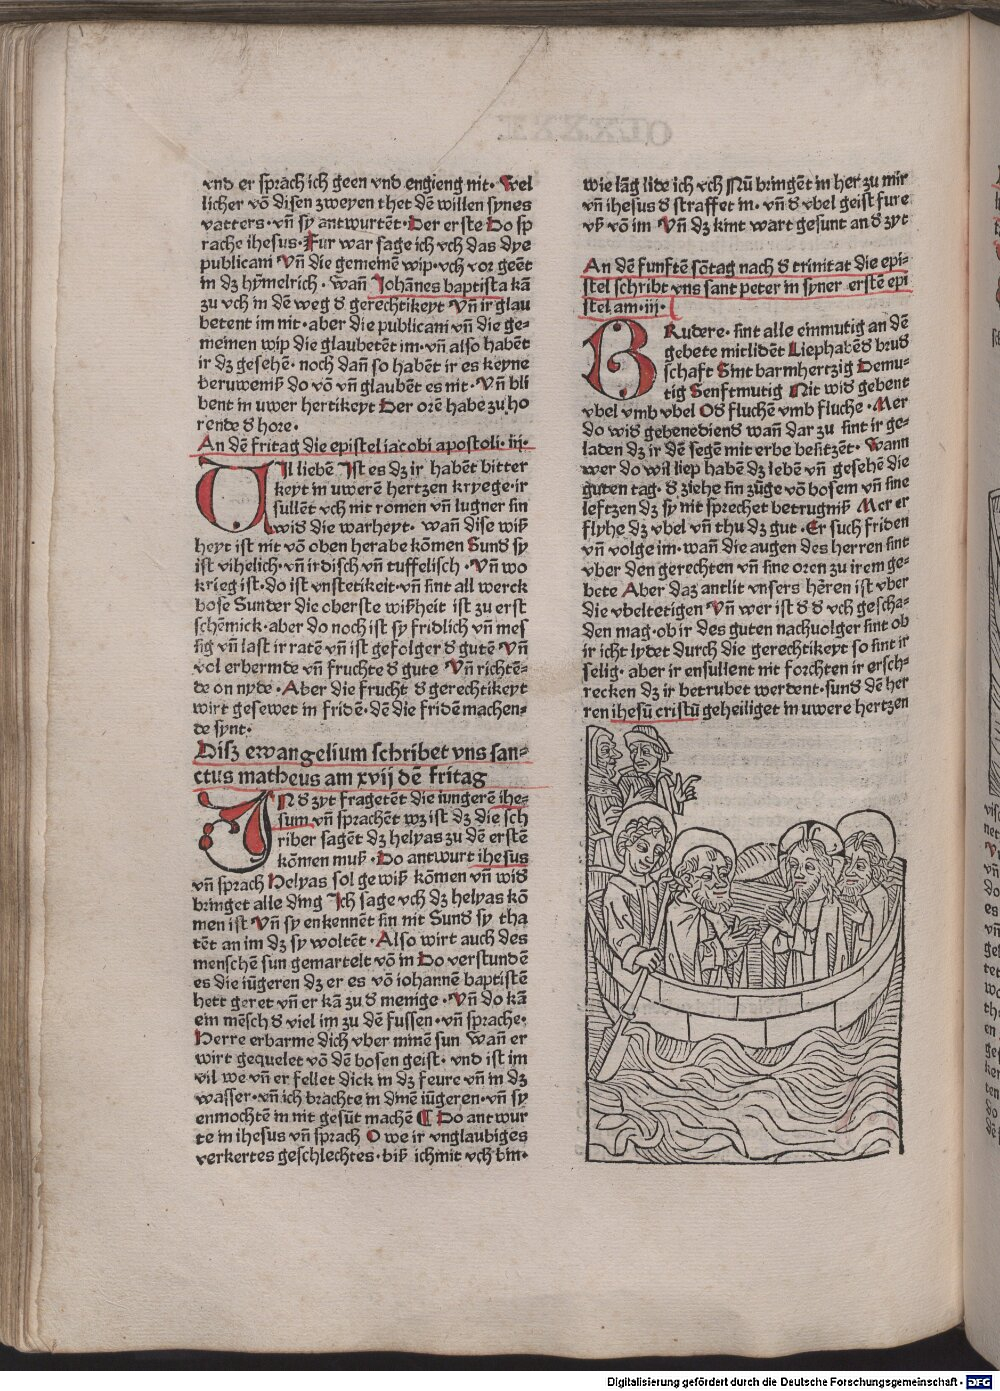 vnd er sprach ich geen vnd engieng nit· Wel
licher vō disen zweyen thet dē willen synes
vatters· vn̄ sy antwurtēt· Der erste Do sp
rache ihesus· Fur war sage ich vch das dye
publicani Vn̄ die gemeinē wip· vch vor geēt
in dʒ hȳmelrich· wan̄ Johānes baptista kā
zu vch in dē weg d̕ gerechtikeyt Vn̄ ir glau
betent im nit· aber die publicani vn̄ die ge-
meinen wip die glaubetēt im· vn̄ also habēt
ir dʒ gesehē· noch dan̄ so habēt ir es keyne
beruweniß do vō vn̄ glaubēt es nit· Vn̄ bli
bent in uwer hertikeyt Der orē habe zu ho
rende d̕ hore·
An dē fritag die epistel iacobi apostoli· iij·
VIl liebē Ist es dʒ ir habēt bitter
keyt in uwerē hertzen kryege· ir
sullēt vch nit romen vn̄ lugner sin
wid̕ die warheyt· wan̄ dise wiß
heyt ist nit vō oben herabe kōmen Sund̕ sy
ist vihelich· vn̄ irdisch vn̄ tuffelisch· Vn̄ wo
krieg ist· do ist vnstetikeit· vn̄ sint all werck
bose Sunder die oberste wißheit ist zu erst
schēmick· aber do noch ist sy fridlich vn̄ mes
sig vn̄ last ir ratē vn̄ ist gefolger d̕ gutē Vn̄
vol erbermde vn̄ fruchte d̕ gute Vn̄ richtē-
de on nyde· Aber die frucht d̕ gerechtikeyt
wirt gesewet in fridē· dē die fridē machen-
de synt·
Disz ewangelium schribet vns san-
ctus matheus am xvij dē fritag
IN d̕ zyt fragetēt die iungerē ihe-
sum vn̄ sprachēt wʒ ist dʒ die sch
riber sagēt dʒ helyas zu dē erstē
kōmen muß· Do antwurt ihesus
vn̄ sprach Helyas sol gewiß kōmen vn̄ wid̕
bringet alle ding Ich sage vch dʒ helyas kō
men ist Vn̄ sy enkennēt sin nit Sund̕ sy tha
tēt an im dʒ sy woltēt· Also wirt auch des
menschē sun gemartelt vō in Do verstundē
es die iūgeren dʒ er es vō iohannē baptistē
hett geret vn̄ er kā zu d̕ menige· Vn̄ do kā
ein mēsch d̕ viel im zu dē fussen· vn̄ sprache·
Herre erbarme dich vber minē sun Wan̄ er
wirt gequelet vō dē bosen geist· vnd ist im
vil we vn̄ er fellet dick in dʒ feure vn̄ in dʒ
wasser· vn̄ ich brachte in dinē iūgeren· vn̄ sy
enmochtē in nit gesūt machē ¶ Do antwur
te in ihesus vn̄ sprach O we ir vnglaubiges
verkertes geschlechtes· biß ich mit vch bin·
wie lāg lide ich vch Nū bringēt in her zu mir
vn̄ ihesus d̕ straffet in· vn̄ d̕ vbel geist fure
vß vō im Vn̄ dʒ kint wart gesunt an d̕ zyt
An dē funftē sōtag nach d̕ trinitat die epi-
stel schribt vns sant peter in syner erstē epi
stel am· iij·
BRudere· sint alle einmutig an dē
gebete mitlidēt Liephabēd̕ brud̕
schaft Sint barmhertzig Demu-
tig Senftmutig Nit wid̕ gebent
vbel vmb vbel Od̕ fluchē vmb fluche· Mer
do wid̕ gebenediend̕ wan̄ dar zu sint ir ge-
laden dʒ ir dē segē mit erbe besitzēt· Wann
wer do wil liep haben dʒ lebē vn̄ gesehē die
guten tag· d̕ ziehe sin zūge vō bosem vn̄ sine
leftzen dʒ sy nit sprechet betrugniß Mer er
flyhe dʒ vbel vn̄ thu dʒ gut· Er such friden
vn̄ volge im· wan̄ die augen des herren sint
vber den gerechten vn̄ sine oren zu irem ge-
bete Aber daz antlit vnsers hēren ist vber
die vbeltetigen Vn̄ wer ist d̕ d̕ vch gescha-
den mag· ob ir des guten nachuolger sint ob
ir icht lydet durch die gerechtikeyt so sint ir
selig· aber ir ensullent nit forchten ir ersch-
recken dʒ ir betrubet werdent· sund̕ dē her
ren ihesū cristū geheiliget in uwere hertzen
Digitalisierung gefördert durch die Deutsche Forschungsgemeinschaft - DFG